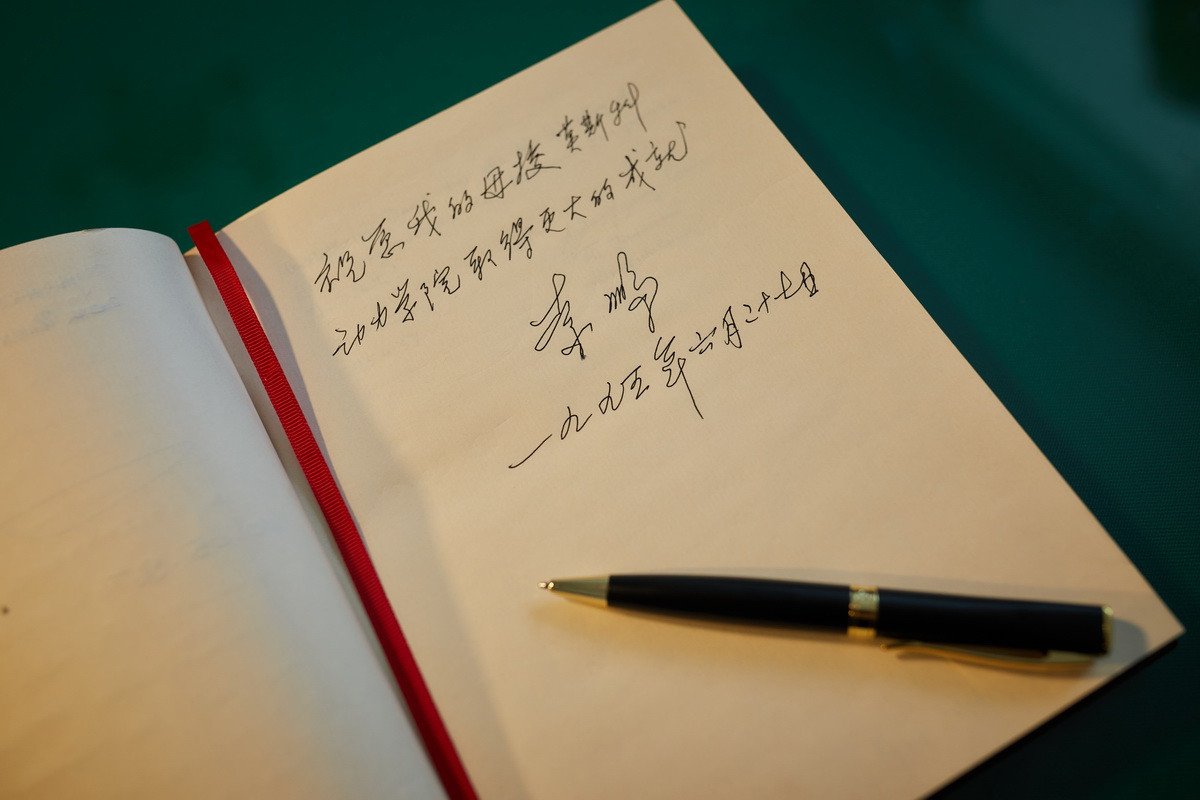 祝愿我的母校莫斯科
动力学院取得更大的成就
李鹏
一九九五年六月二十七日